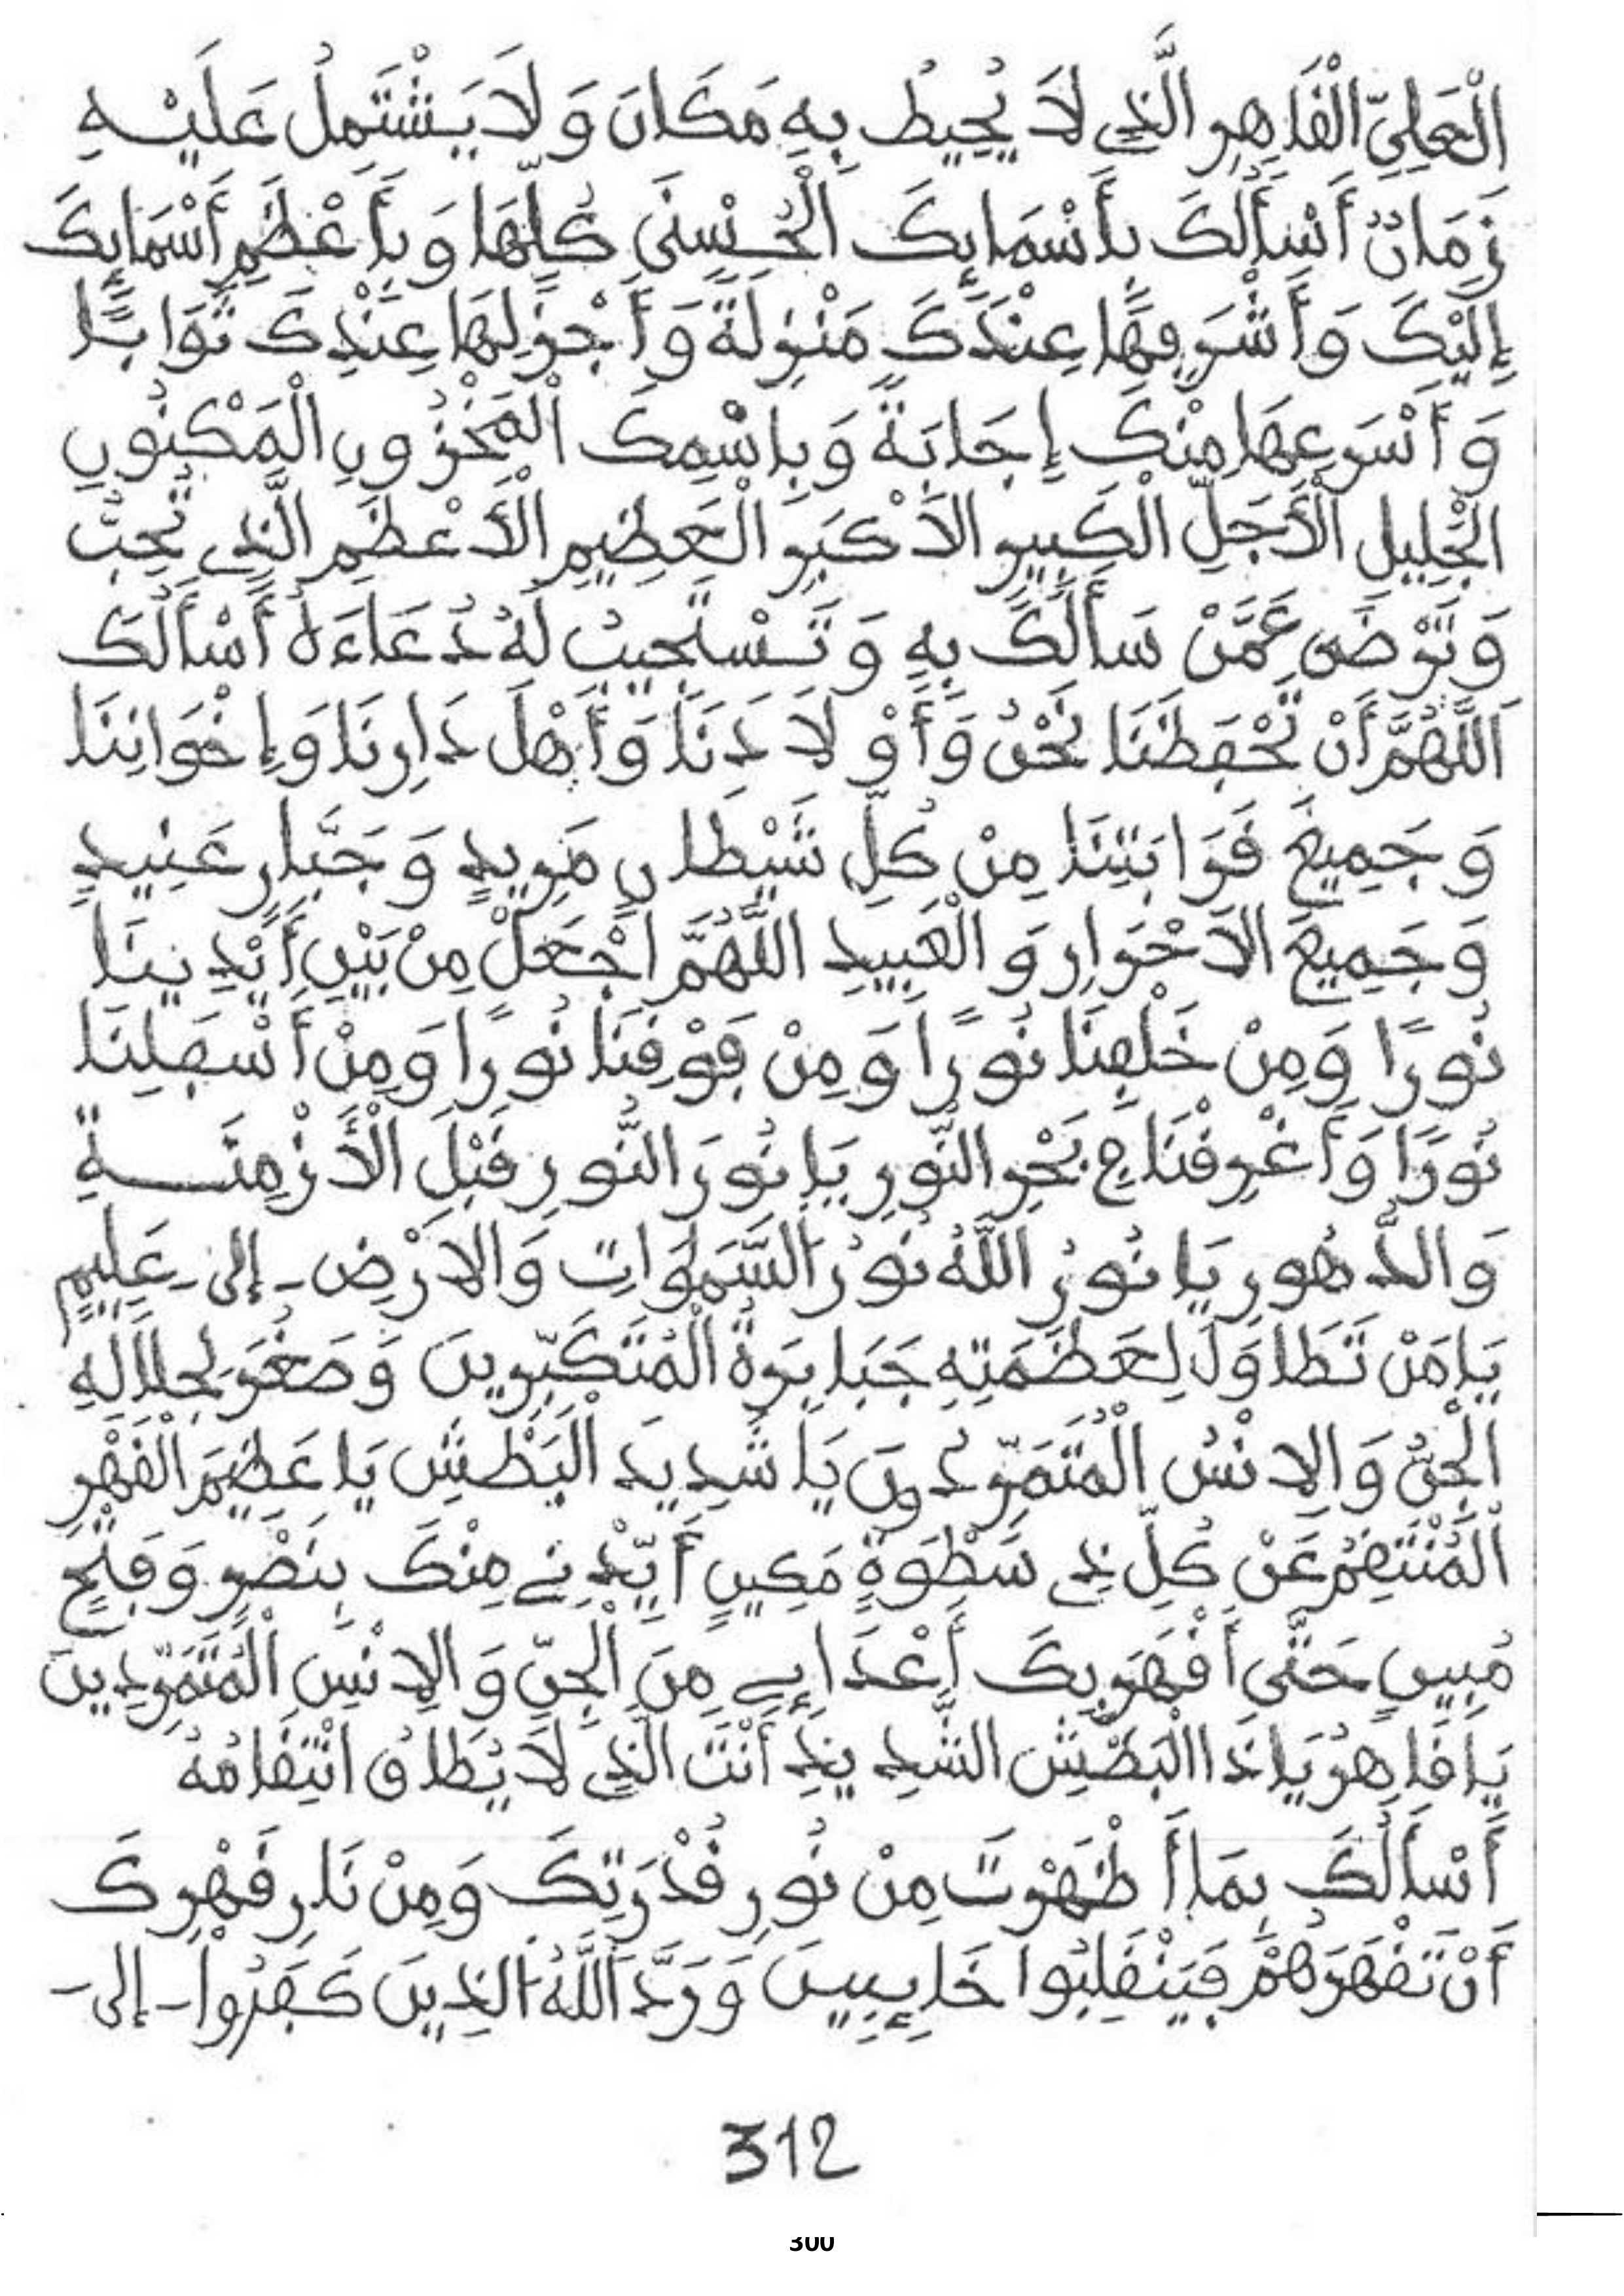 الْعَلِيِّ الْقَاهِرِ الَّذِي لَا يُحِيطُ بِهِ مَكَانٌ وَلَا يَشْتَمِلُ عَلَيْهِ
زَمَانٌ أَسْأَلُكَ بِأَسْمَائِكَ الْحُسْنَى كُلِّهَا وَبِأَعْظَمِ أَسْمَائِكَ
إِلَيْكَ وَأَشْرَفِهَا عِنْدَكَ مَنْزِلَةً وَأَجْزَلِهَا عِنْدِكَ ثَوَابًا
وَأَسْرَعِهَا مِنْكَ إِجَابَةً وَبِاسْمِكَ الْمَخْزُونِ الْمَكْنُونِ
الْجَلِيلِ الْأَجَلِّ الْكَبِيرِ الْأَكْبَرِ الْعَظِيمِ الْأَعْظَمِ الَّذِي تُحِبُّ
وَتَرْضَى عَمَّنْ سَأَلَكَ بِهِ وَتَسْتَجِيبُ لَهُ دُعَاءَهُ أَسْأَلُكَ
اَللَّهُمَّ أَنْ تَحْفَظَنَا نَحْنُ وَأَوْلَادَنَا وَأَهْلَ دَارِنَا وَإِخْوَانِنَا
وَجَمِيعَ قَرَابَتِنَا مِنْ كُلِّ شَيْطَانٍ مَرِيدٍ وَجَبَّارٍ عَنِيدٍ
وَجَمِيعَ الْأَحْرَارِ وَالْعَبِيدِ اللَّهُمَّ اجْعَلْ مِنْ بَيْنِ أَيْدِينَا
نُورًا وَمِنْ خَلْفِنَا نُورًا وَمِنْ فَوْقِنَا نُورًا وَمِنْ أَسْفَلِنَا
نُورًا وَأَغْرِقْنَا فِي بَحْرِ النُّورِ يَا نُورَ النُّورِ قَبْلَ الْأَزْمِنَةِ
وَالدُّهُورِ يَا نُورُ اللَّهُ نُورُ السَّمَاوَاتِ وَالْأَرْضِ - إلى - عَلِيمٍ
يَا مَنْ تَطَاوَلَ لِعَظَمَتِهِ جَبَابِرَةُ الْمُتَكَبِّرِينَ وَصَغُرَ لِجَلَالِهِ
الْجِنُّ وَالْإِنْسُ الْمُتَمَرِّدُونَ يَا شَدِيدَ الْبَطْشِ يَا عَظِيمَ الْقَهْرِ
الْمُنْتَقِمُ عَنْ كُلِّ ذِي سَطْوَةٍ مَكِينٍ أَيِّدْنِي مِنْكَ بِنَصْرٍ وَفَتْحٍ
مُبِينٍ حَتَّى أَقْهَرَ بِكَ أَعْدَائِي مِنَ الْجِنِّ وَالْإِنْسِ الْمُتَمَرِّدِينَ
يَا قَاهِرُ يَا ذَا الْبَطْشِ الشَّدِيدِ أَنْتَ الَّذِي لَا يُطَاقُ انْتِقَامُهُ
أَسْأَلُكَ بِمَا أَظْهَرْتَ مِنْ نُورِ قُدْرَتِكَ وَمِنْ نَارِ قَهْرِكَ
أَنْ تَقْهَرَهُمْ فَيَنْقَلِبُوا خَائِبِينَ وَرَدَّ اللَّهُ الَّذِينَ كَفَرُوا - إلى -
312
300